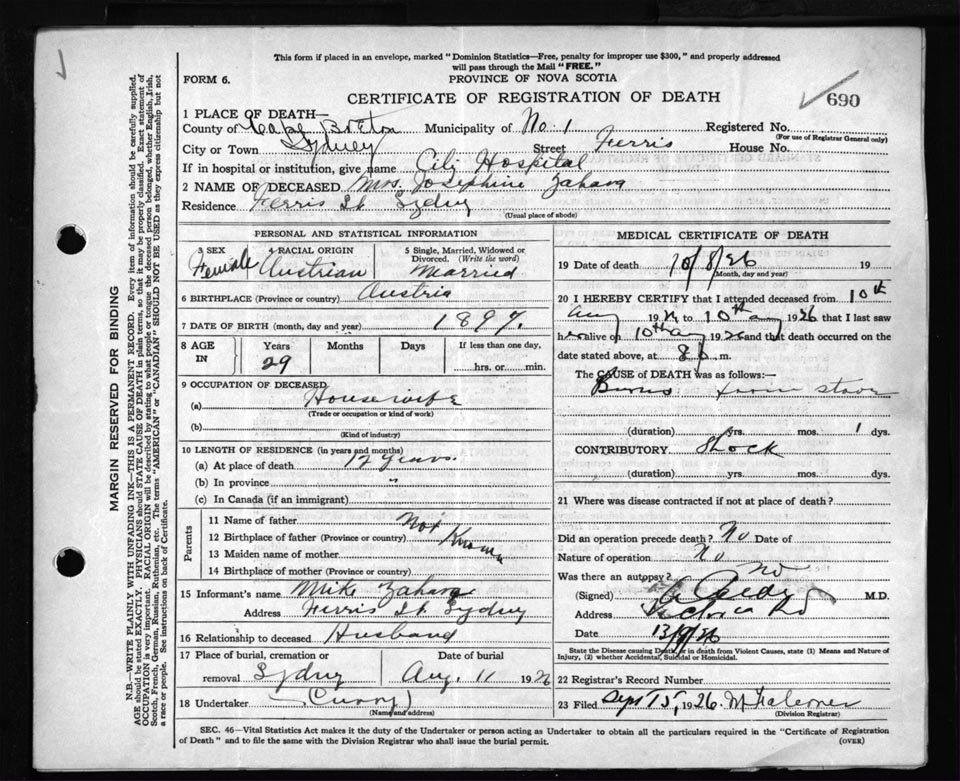 This form if placed in an envelope, marked "Dominion Statistics—Free, penalty for improper use $300," and properly addressed
will pass through the Mail "FREE."
FORM 6.
PROVINCE OF NOVA SCOTIA
CERTIFICATE OF REGISTRATION OF DEATH
690
1 PLACE OF DEATH—
County of Cape Breton Municipality of No. 1 Registered No.
(For use of Registrar General only)
City or Town Sydney Street Ferris House No.
If in hospital or institution, give name City Hospital
2 NAME OF DECEASED Mrs. Josephine Zahara
Residence Ferris St Sydney
(Usual place of abode)
PERSONAL AND STATISTICAL INFORMATION
3 SEX Female
4 RACIAL ORIGIN Austrian
5 Single, Married, Widowed or Divorced. (Write the word) Married
6 BIRTHPLACE (Province or country) Austria
7 DATE OF BIRTH (month, day and year) 1897.
8 AGE IN Years 29 Months Days If less than one day, hrs. or min.
9 OCCUPATION OF DECEASED
(a) Housewife
(Trade or occupation or kind of work)
(b)
(Kind of industry)
10 LENGTH OF RESIDENCE (in years and months)
(a) At place of death 12 years.
(b) In province "
(c) In Canada (if an immigrant)
Parents
11 Name of father Not
12 Birthplace of father (Province or country) Known
13 Maiden name of mother
14 Birthplace of mother (Province or country)
15 Informant's name Mike Zahara
Address Ferris St Sydney
16 Relationship to deceased Husband
17 Place of burial, cremation or removal Sydney Date of burial Aug. 11 1926
18 Undertaker (Curry)
(Name and address)
MEDICAL CERTIFICATE OF DEATH
19 Date of death 10/8/26 19
(Month, day and year)
20 I HEREBY CERTIFY that I attended deceased from 10th
Aug 1926 to 10th Aug 1926 that I last saw
her alive on 10th Aug 1926 and that death occurred on the
date stated above, at 8 p. m.
The CAUSE OF DEATH was as follows:—
Burns from stove
(duration) yrs. mos. 1 dys.
CONTRIBUTORY Shock
(duration) yrs. mos. dys.
21 Where was disease contracted if not at place of death?
Did an operation precede death? No Date of
Nature of operation No
Was there an autopsy? no
(Signed) M.D.
Address Victoria Rd
Date 13/9/26
State the Disease causing Death, or in death from Violent Causes, state (1) Means and Nature of
Injury, (2) whether Accidental, Suicidal or Homicidal.
22 Registrar's Record Number
23 Filed Sept 15, 1926.
(Division Registrar)
SEC. 46—Vital Statistics Act makes it the duty of the Undertaker or person acting as Undertaker to obtain all the particulars required in the "Certificate of Registration
of Death" and to file the same with the Division Registrar who shall issue the burial permit.
(OVER)
MARGIN RESERVED FOR BINDING
N.B.—WRITE PLAINLY WITH UNFADING INK—THIS IS A PERMANENT RECORD. Every item of information should be carefully supplied.
AGE should be stated EXACTLY. PHYSICIANS should STATE CAUSE OF DEATH in plain terms, so that it may be properly classified. Exact statement of
OCCUPATION is very important. RACIAL ORIGIN will be described by stating to what people or tongue the deceased person belonged, whether English, Irish,
Scotch, French, German, Russian, Ruthenian, etc. The terms "AMERICAN" or "CANADIAN" SHOULD NOT BE USED as they express citizenship but not
a race or people. See instructions on back of Certificate.